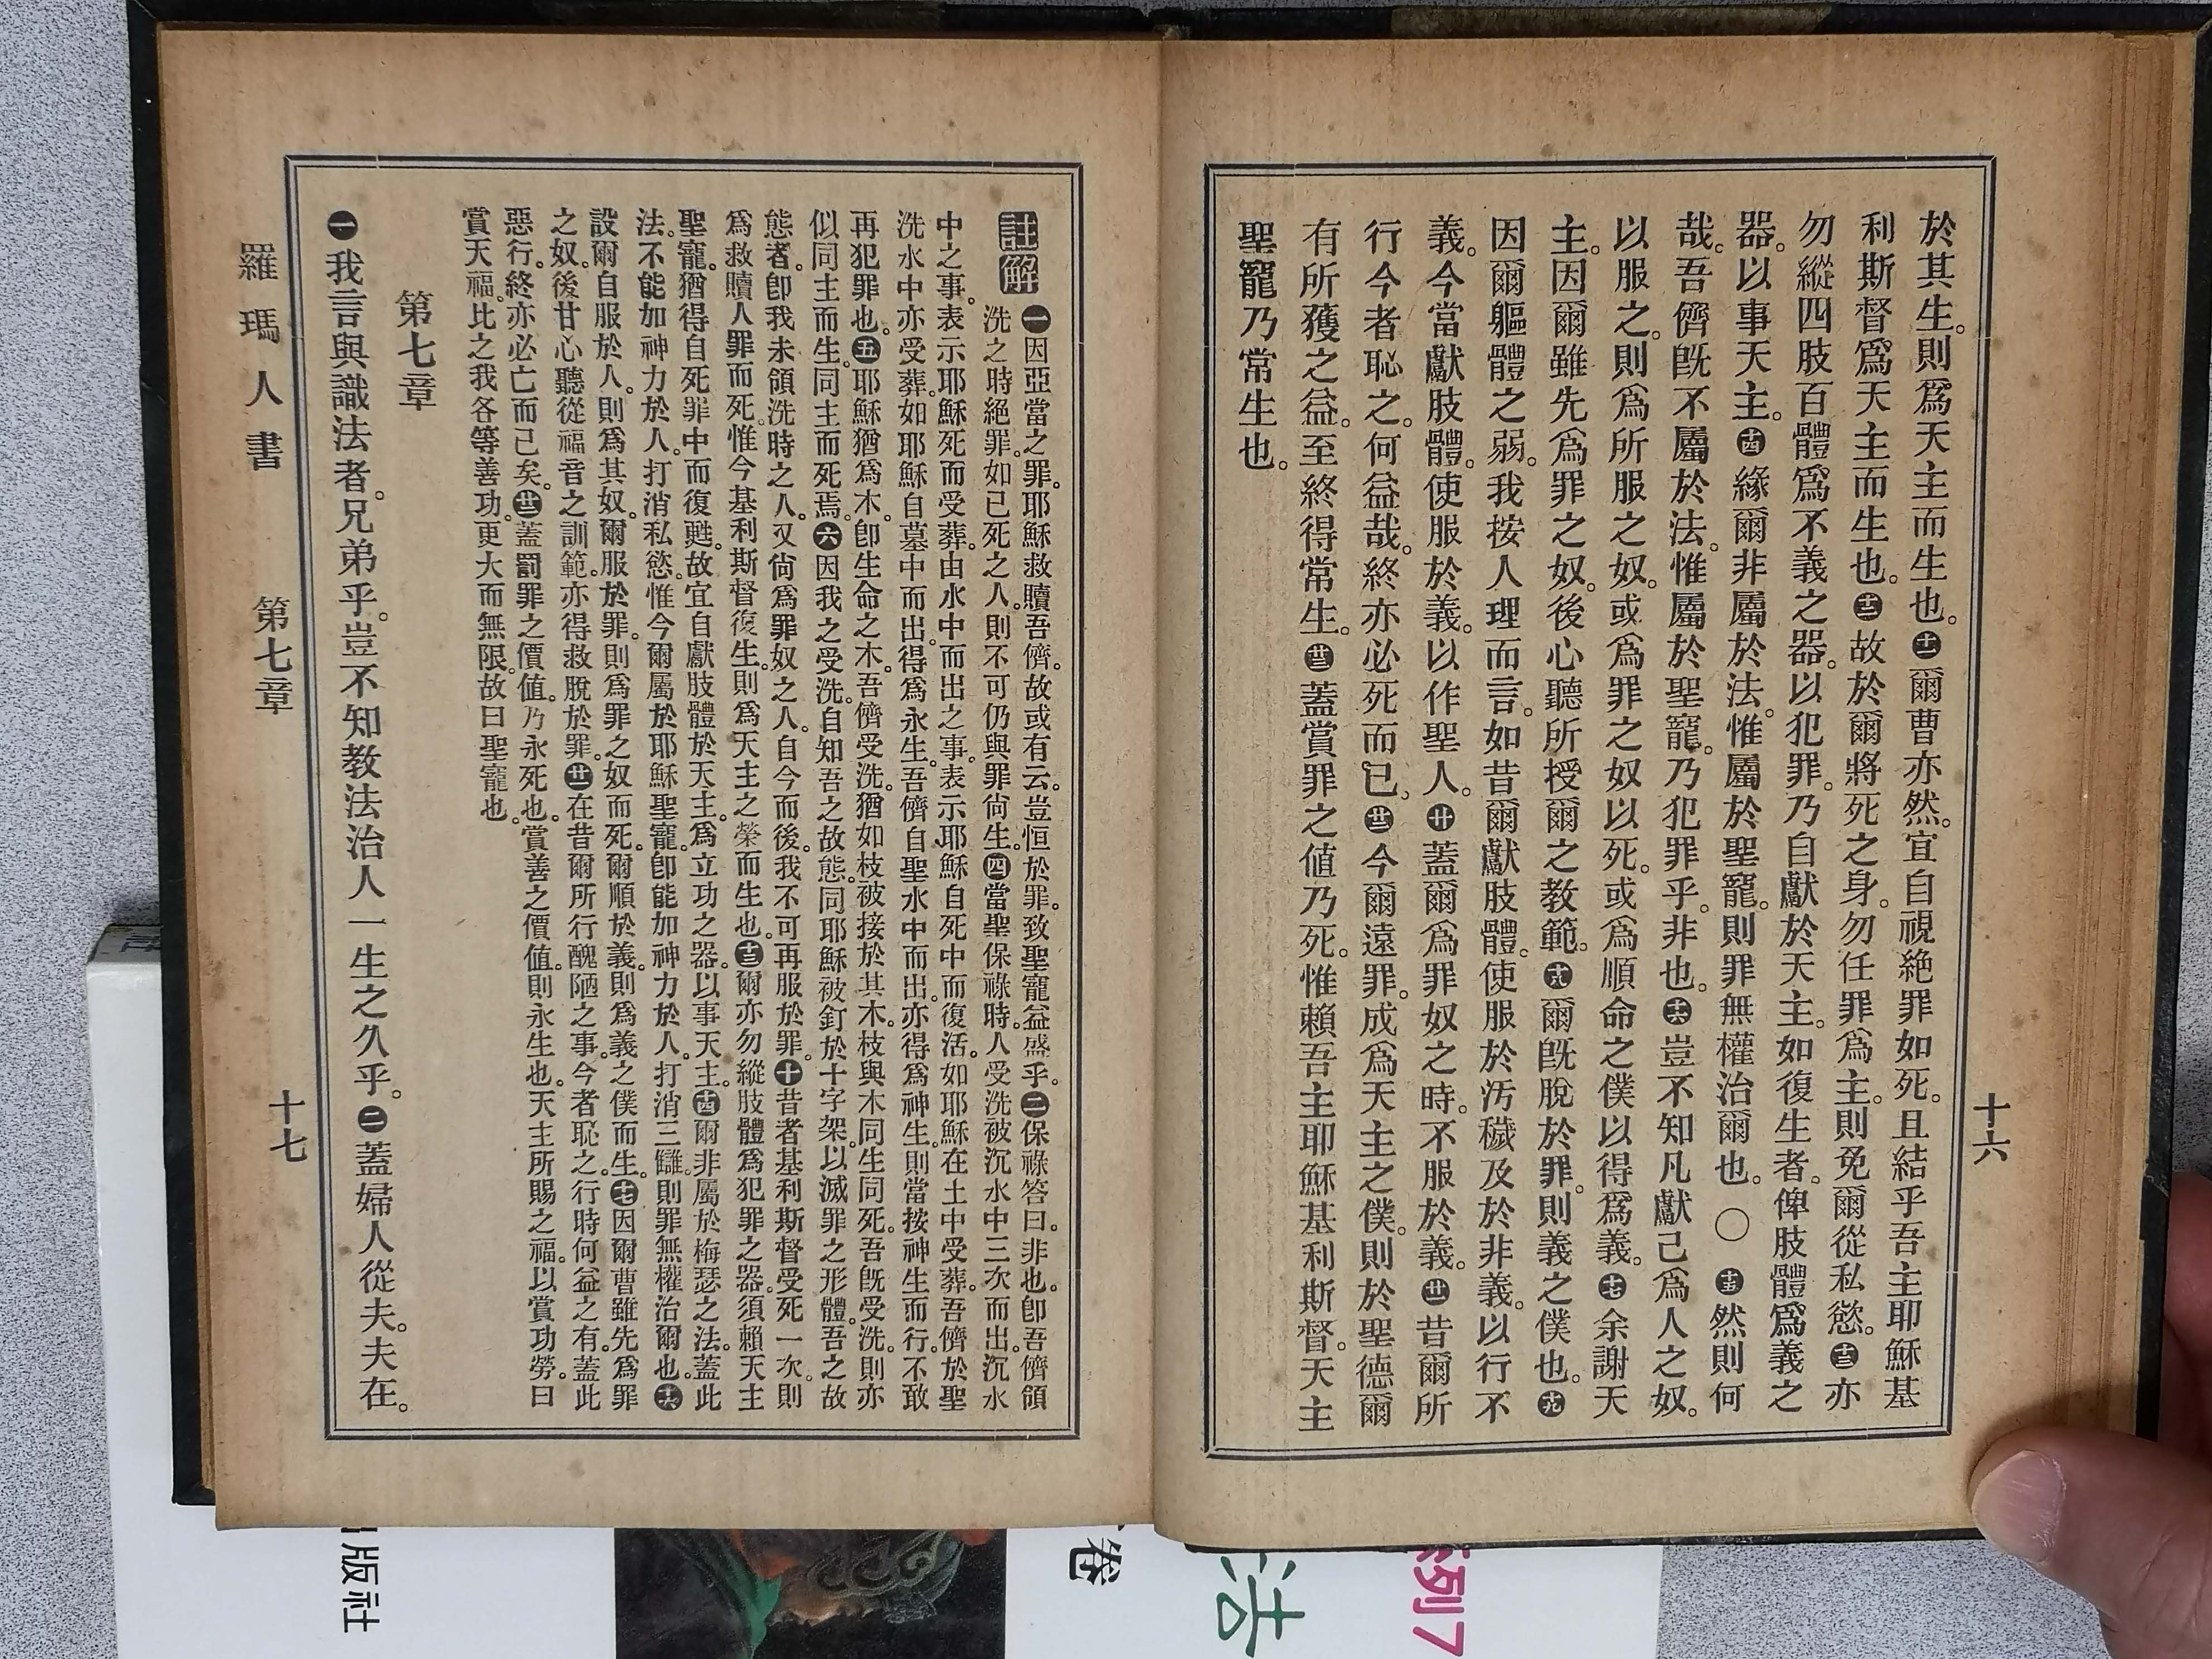 十六
於其生。則爲天主而生也。㊉一爾曹亦然。宜自視絶罪如死。且結乎吾主耶穌基
利斯督爲天主而生也。十二故於爾將死之身。勿任罪爲主。則免爾從私慾。十三亦
勿縱四肢百體爲不義之器。以犯罪。乃自獻於天主。如復生者。俾肢體爲義之
器。以事天主。十四緣爾非屬於法。惟屬於聖寵。則罪無權治爾也。〇十五然則何
哉。吾儕旣不屬於法。惟屬於聖寵。乃犯罪乎。非也。十六豈不知凡獻己爲人之奴。
以服之。則爲所服之奴。或爲罪之奴以死。或爲順命之僕以得爲義。十七余謝天
主。因爾雖先爲罪之奴。後心聽所授爾之教範。十八爾旣脫於罪。則義之僕也。十九
因爾軀體之弱。我按人理而言。如昔爾獻肢體。使服於汚穢及於非義。以行不
義。今當獻肢體。使服於義。以作聖人。廿蓋爾爲罪奴之時。不服於義。廿一昔爾所
行今者恥之。何益哉。終亦必死而已。廿二今爾遠罪。成爲天主之僕。則於聖德爾
有所獲之益。至終得常生。廿三蓋賞罪之値乃死。惟賴吾主耶穌基利斯督。天主
聖寵乃常生也。
註解 一因亞當之罪。耶穌救贖吾儕。故或有云。豈恒於罪。致聖寵益盛乎。二保祿答曰。非也。卽吾儕領
洗之時絶罪。如已死之人。則不可仍與罪尙生。四當聖保祿時。人受洗被沉水中三次而出。沉水
中之事。表示耶穌死而受葬。由水中而出之事。表示耶穌自死中而復活。如耶穌在土中受葬。吾儕於聖
洗水中亦受葬。如耶穌自墓中而出。得爲永生。吾儕自聖水中而出。亦得爲神生。則當按神生而行。不敢
再犯罪也。五耶穌猶爲木。卽生命之木。吾儕受洗。猶如枝被接於其木。枝與木同生同死。吾旣受洗。則亦
似同主而生。同主而死焉。六因我之受洗。自知吾之故態。同耶穌被釘於十字架。以滅罪之形體。吾之故
態者。卽我未領洗時之人。又尙爲罪奴之人。自今而後。我不可再服於罪。十昔者基利斯督受死一次。則
爲救贖人罪而死。惟今基利斯督復生。則爲天主之榮而生也。十三爾亦勿縱肢體爲犯罪之器。須賴天主
聖寵。猶得自死罪中而復甦。故宜自獻肢體於天主。爲立功之器。以事天主。十四爾非屬於梅瑟之法。蓋此
法。不能加神力於人。打消私慾。惟今爾屬於耶穌聖寵。卽能加神力於人。打消三讎。則罪無權治爾也。十六
設爾自服於人。則爲其奴。爾服於罪。則爲罪之奴而死。爾順於義。則爲義之僕而生。十七因爾曹雖先爲罪
之奴。後甘心聽從福音之訓範。亦得救脫於罪。廿一在昔爾所行醜陋之事。今者恥之。行時何益之有。蓋此
惡行。終亦必亡而已矣。廿三蓋罰罪之價値。乃永死也。賞善之價値。則永生也。天主所賜之福。以賞功勞。曰
賞天福。比之我各等善功。更大而無限。故曰聖寵也。
第七章
一我言與識法者。兄弟乎。豈不知教法治人一生之久乎。二蓋婦人從夫。夫在。
羅瑪人書 第七章 十七
出版社
卷
法
系列7